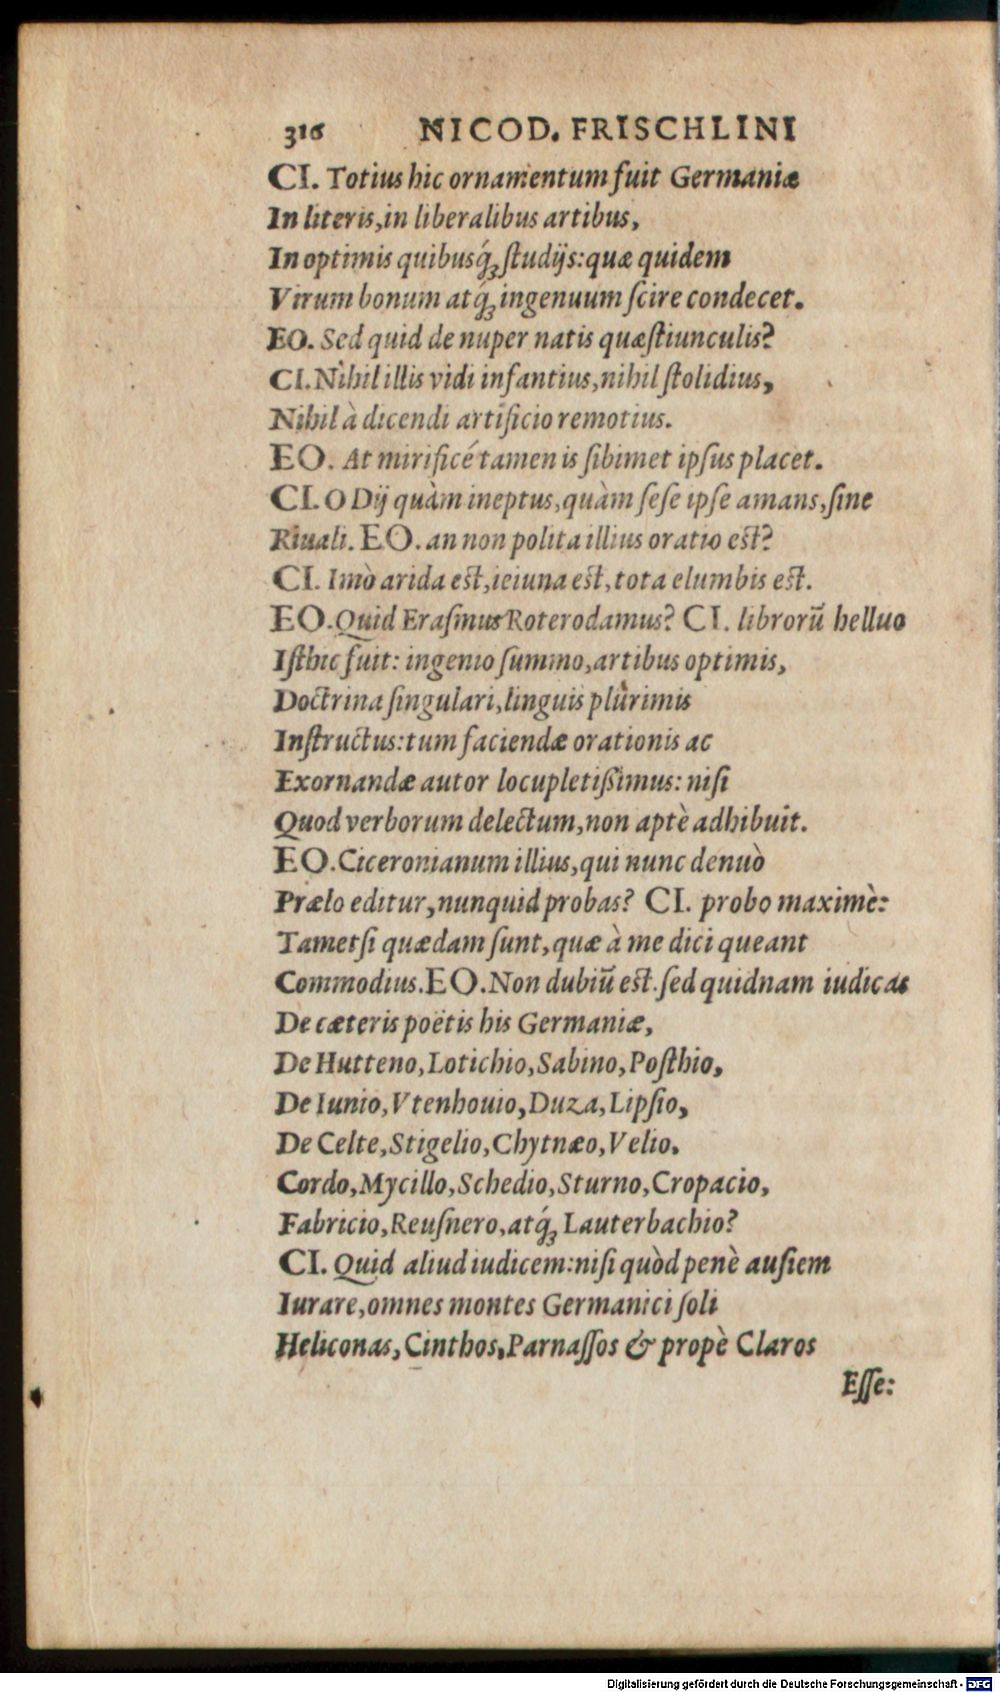 316 NICOD. FRISCHLINI
CI. Totius hic ornamentum fuit Germaniæ
In literis, in liberalibus artibus,
In optimis quibusq́ꝫ ſtudijs: quæ quidem
Virum bonum atq́ꝫ ingenuum ſcire condecet.
EO. Sed quid de nuper natis quæſtiunculis?
CI. Nihil illis vidi infantius, nihil ſtolidius,
Nihil à dicendi artificio remotius.
EO. At mirificé tamen is ſibimet ipſus placet.
CI. O Dij quàm ineptus, quàm ſeſe ipſe amans, ſine
Riuali. EO. an non polita illius oratio eſt?
CI. Imò arida eſt, ieiuna eſt, tota elumbis eſt.
EO. Quid Eraſmus Roterodamus? CI. librorū helluo
Iſthic fuit: ingenio ſummo, artibus optimis,
Doctrina ſingulari, linguis plurimis
Inſtructus: tum faciendæ orationis ac
Exornandæ autor locupletiſſimus: niſi
Quod verborum delectum, non aptè adhibuit.
EO. Ciceronianum illius, qui nunc denuò
Prælo editur, nunquid probas? CI. probo maximè:
Tametſi quædam ſunt, quæ à me dici queant
Commodius. EO. Non dubiū eſt. ſed quidnam iudicas
De cæteris poëtis his Germaniæ,
De Hutteno, Lotichio, Sabino, Poſthio,
De Iunio, Vtenhouio, Duza, Lipſio,
De Celte, Stigelio, Chytnæo, Velio.
Cordo, Mycillo, Schedio, Sturno, Cropacio,
Fabricio, Reuſnero, atq́ꝫ Lauterbachio?
CI. Quid aliud iudicem: niſi quòd penè auſiem
Iurare, omnes montes Germanici ſoli
Heliconas, Cinthos, Parnaſſos & propè Claros
Eſſe:
Digitalisierung gefördert durch die Deutsche Forschungsgemeinschaft - DFG